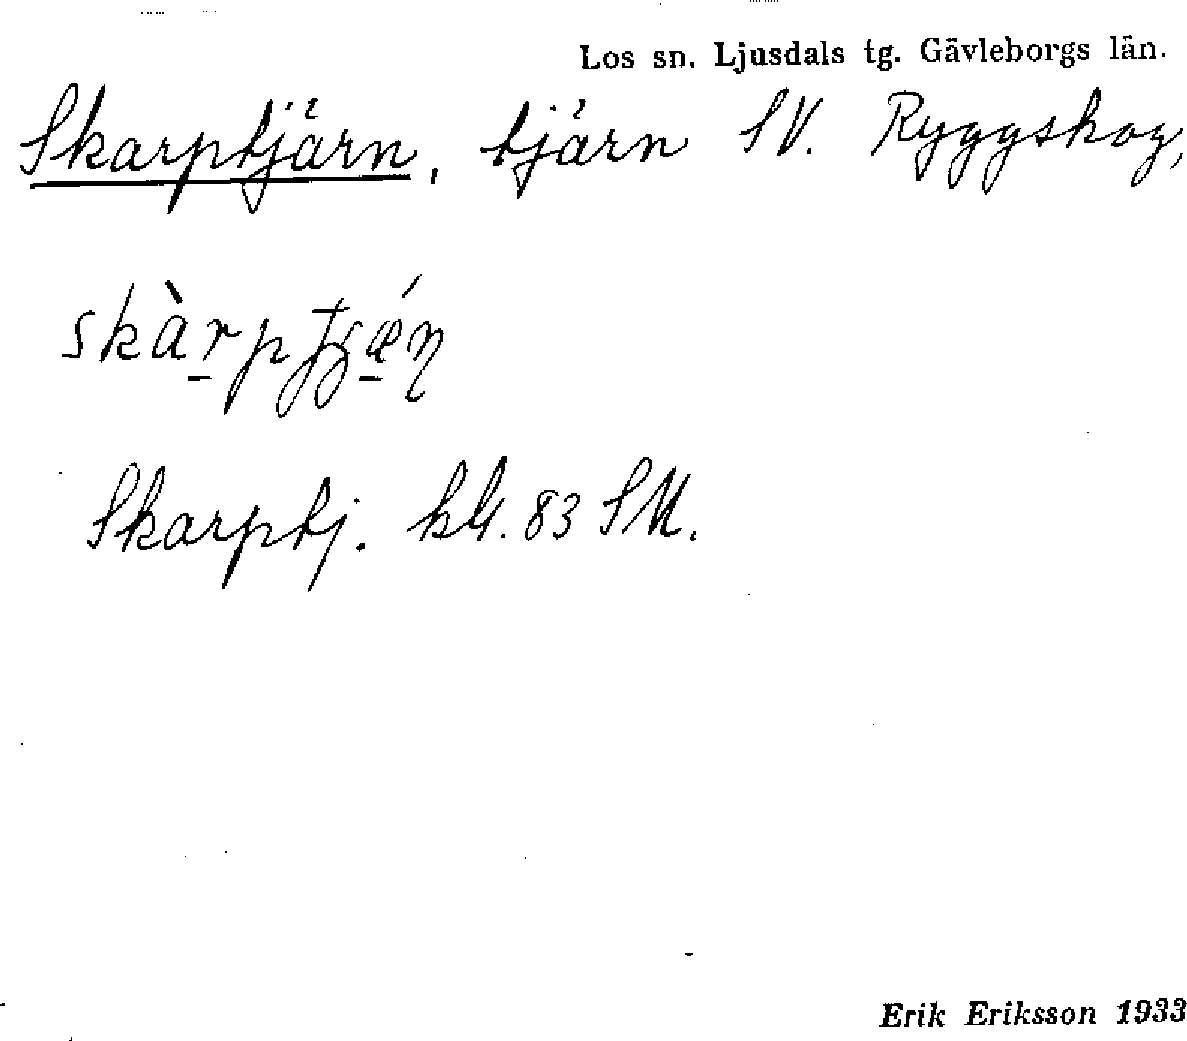 Los sn. Ljusdals tg. Gävleborgs län.
Skarptjärn, tjärn SV. Ryggskog,
Skarptj. kbl. 83 SM.
Erik Eriksson 1933